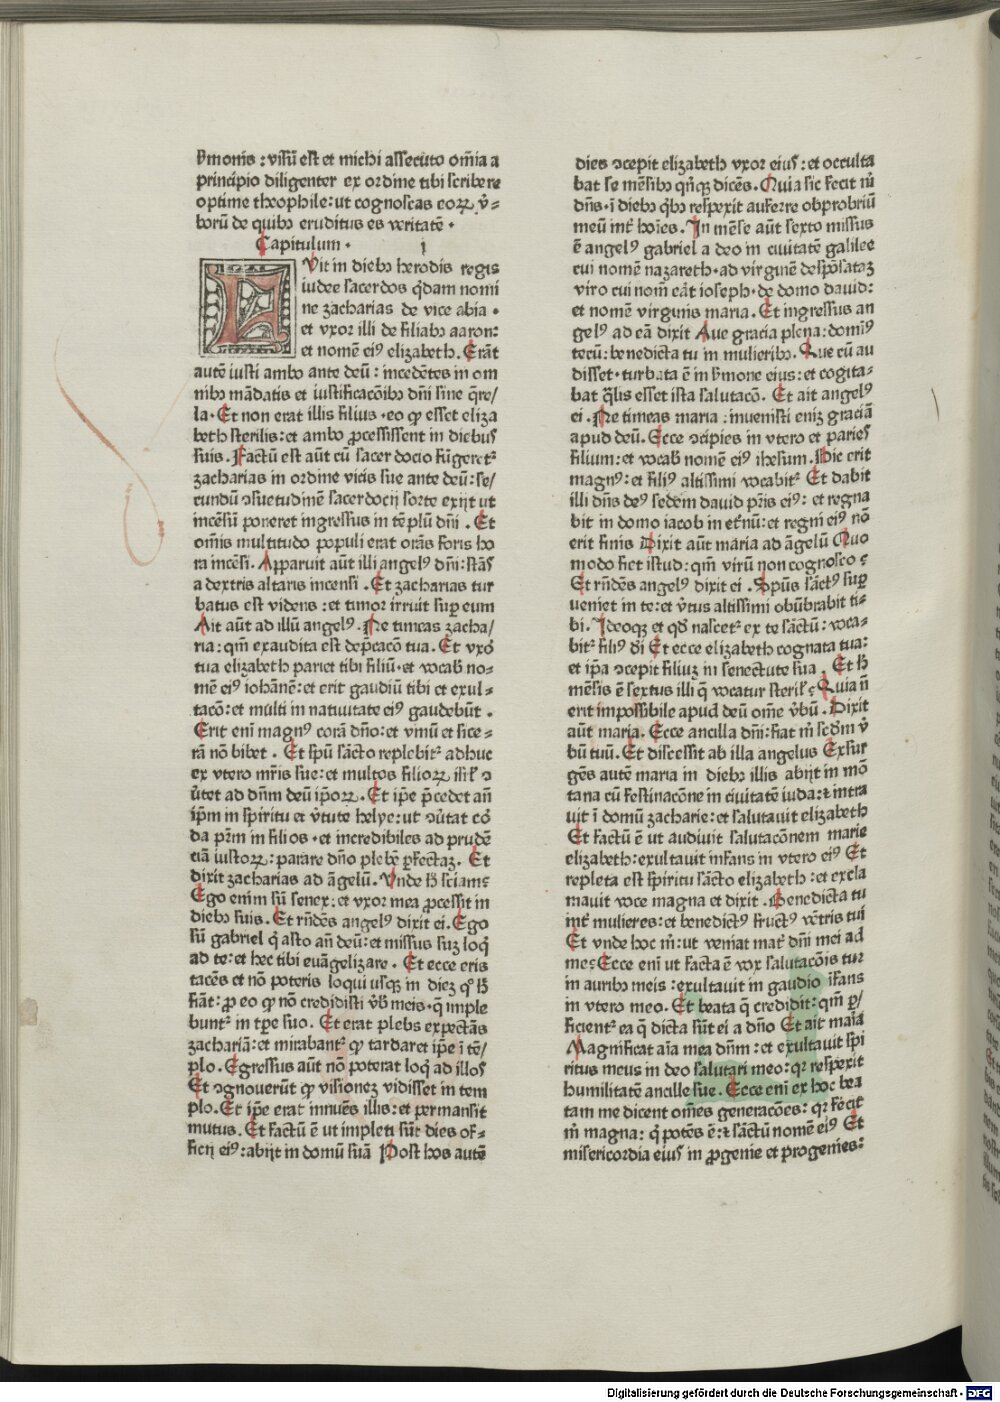 ẞmonis : visū est et michi assecuto om̄ia a
principio diligenter ex ordine tibi scribere
optime theophile: ut cognoscas eoꝝ v̄⸗
borū de quibꝯ eruditus es veritatē ·
Capitulum · i
FVit in diebꝯ herodis regis
iudee sacerdos q̄dam nomi
ne zacharias de vice abia ·
et vxor illi de filiabꝯ aaron:
et nomē eiꝰ elizabeth. Erāt
autē iusti ambo ante deū : incedētes in om
nibꝯ mādatis et iustificacōibꝯ dn̄i sine q̄re/
la· Et non erat illis filius · eo ꝙ esset eliza
beth sterilis: et ambo ꝓcessissent in diebus
suis. Factū est aūt cū sacerdocio fūgeretᷣ
zacharias in ordine vicis sue ante deū: se/
cundū ↄsuetudinē sacerdocij sorte exijt ut
incēsū poneret ingressus in tēplū dn̄i . Et
om̄is multitudo populi erat orās foris ho
ra incēsi. Apparuit aūt illi angelꝰ dn̄i: stās
a dextris altaris incensi . Et zacharias tur
batus est videns : et timor irruit suꝑ eum
Ait aūt ad illū angelꝰ. Ne timeas zacha/
ria: qm̄ exaudita est dep̄cacō tua. Et vxoꝛ
tua elizabeth pariet tibi filiū · et vocabꝭ no⸗
mē eiꝰ iohānē: et erit gaudiū tibi et exul⸗
tacō: et multi in natiuitate eiꝰ gaudebūt .
Erit eni magnꝰ corā dn̄o: et vinū et sice⸗
rā nō bibet . Et spū sācto replebitᷣ adhuc
ex vtero mr̄is sue: et multos filioꝝ isrl̄ ↄ
ūtet ad dn̄m deū ip̄oꝝ. Et ip̄e p̄cedet an̄
ip̄m in spiritu et v̄tute helye: ut ↄūtat co͛
da pr̄m in filios · et incredibiles ad prudē
ciā iustoꝝ : parare dn̄o plebē ꝑfectaꝫ. Et
dixit zacharias ad āgelū. Vnde h̄ sciam⸗
Ego enim sū senex: et vxor mea ꝓcessit in
diebꝯ suis. Et rn̄dēs angelꝰ dixit ei. Ego
sū gabriel q̇ asto an̄ deū: et missus suꝫ loq̇
ad te: et hec tibi euāgelizare . Et ecce eris
tacēs et nō poteris loqui usꝙ in dieꝫ qͦ h̄
fiāt : ꝓ eo ꝙ nō credidisti v̄bꝭ meis · q̄ imple
buntᷣ in tꝑe suo. Et erat plebs expectās
zachariā: et mirabantᷣ ꝙ tardaret ip̄e ī tē/
plo. Egressus aūt nō poterat loq̇ ad illos
Et ↄgnouerūt ꝙ visioneꝫ vidisset in tem
plo. Et ip̄e erat innuēs illis: et permansit
mutus. Et factū ē ut impleti sūt dies of⸗
ficij eiꝰ: abijt in domū suā Post hos autē
dies ↄcepit elizabeth vxor eiuſ: et occulta
bat se mēsibꝯ qn̄qꝫ dicēs. Quia sic fecit m̄
dn̄s · ī diebꝯ q̇bꝯ respexit auferre obprobriū
meū int̄ hoīes. In mēse aūt sexto missus
ē angelꝰ gabriel a deo in ciuitatē galilee
cui nomē nazareth · ad virginē despōsataꝫ
viro cui nom̄ eāt ioseph · de domo dauid:
et nomē virginis maria. Et ingressus an
gelꝰ ad eā dixit Aue gracia plena: domīꝰ
tecū: benedicta tu in mulieribꝯ. Que cū au
disset · turbata ē in ẞmone eius: et cogita⸗
bat q̄lis esset ista salutacō. Et ait angelꝰ
ei . Ne timeas maria : inuenisti eniꝫ graciā
apud deū. Ecce ↄcipies in vtero et parieſ
filium: et vocabꝭ nomē eiꝰ ihesum. Hic erit
magnꝰ: et filiꝰ altissimi vocabitᷣ Et dabit
illi dn̄s deꝰ sedem dauid pr̄is eiꝰ: et regna
bit in domo iacob in et̄nū: et regni eiꝰ nō
erit finis Dixit aūt maria ad āgelū Quo
modo fiet istud: qm̄ virū non cognosco ⸗
Et rn̄dēs angelꝰ dixit ei . Spūs sāctꝰ suꝑ
ueniet in te: et v̄tus altissimi obūbrabit ti⸗
bi. Ideoqꝫ et qd̄ nascetᷣ ex te sāctū : voca⸗
bitᷣ filiꝰ dī Et ecce elizabeth cognata tua:
et ip̄a ↄcepit filiuꝫ in senectute sua . Et h̄
mēsis ē sextus illi q̄ vocatur sterilꝭ: Quia n̄
erit impossibile apud deū om̄e v̄bū . Dixit
aūt maria. Ecce ancilla dn̄i: fiat m̄ scd̄m v̄
bū tuū. Et discessit ab illa angelus Exsur
gēs autē maria in diebꝯ illis abijt in mō
tana cū festinacōne in ciuitatē iuda: ⁊ intra
uit ī domū zacharie: et salutauit elizabeth
Et factū ē ut audiuit salutacōnem marie
elizabeth: exultauit infans in vtero eiꝰ Et
repleta est spiritu sācto elizabeth : et excla
mauit voce magna et dixit . Benedicta tu
int̄ mulieres: et benedictꝰ fructꝰ vētris tui
Et vnde hoc m̄: ut veniat mat̄ dn̄i mei ad
me⸗ Ecce eni ut facta ē vox salutacōis tue
in auribꝯ meis : exultauit in gaudio īfans
in vtero meo. Et beata q̄ credidit: qm̄ ꝑ/
ficientᷣ ea q̄ dicta sūt ei a dn̄o Et ait maīa
Magnificat aīa mea dn̄m : et exultauit spi
ritus meus in deo salutari meo: qꝛ respexit
humilitatē ancille sue. Ecce eni ex hoc bea
tam me dicent om̄es generacōes: qꝛ fecit
m̄ magna: q̇ potēs ē: ⁊ sāctū nomē eiꝰ Et
misericordia eiuſ in ꝓgenie et progenies:
Digitalisierung gefördert durch die Deutsche Forschungsgemeinschaft - DFG